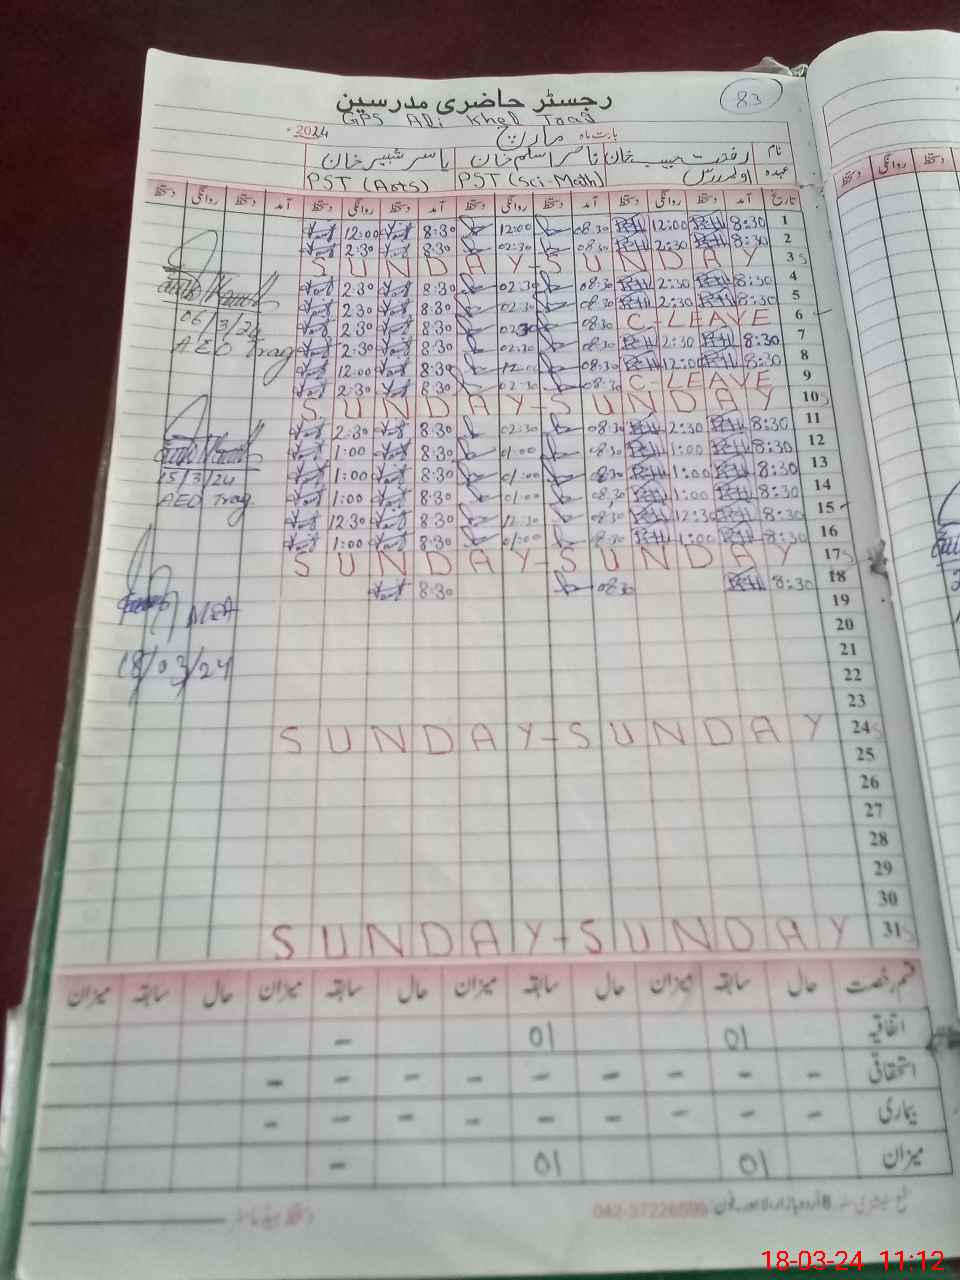 رجسٹر حاضری مدرسین
83
GPS Ali Khel Trag
بابت ماہ مارچ 2024
نام رفعت حبیب خان ناصر اسلم خان یاسر شبیر خان
عہدہ PST (Sci-Math) PST (Arts)
تاریخ آمد دستخط روانگی دستخط آمد دستخط روانگی دستخط آمد دستخط روانگی دستخط آمد دستخط روانگی دستخط
1 8:30 12:00 08:30 12:00 8:30 12:00
2 8:30 2:30 08:30 02:30 8:30 2:30
3 S SUNDAY-SUNDAY
4 8:30 2:30 08:30 02:30 8:30 2:30
5 8:30 2:30 08:30 02:30 8:30 2:30
6 C-LEAVE 08:30 02:30 8:30 2:30
7 8:30 2:30 08:30 02:30 8:30 2:30
8 8:30 12:00 08:30 12:00 8:30 12:00
9 C-LEAVE 08:30 02:30 8:30 2:30
10 S SUNDAY-SUNDAY
11 8:30 2:30 08:30 02:30 8:30 2:30
12 8:30 1:00 08:30 01:00 8:30 1:00
13 8:30 1:00 08:30 01:00 8:30 1:00
14 8:30 1:00 08:30 01:00 8:30 1:00
15 8:30 12:30 08:30 12:30 8:30 12:30
16 8:30 1:00 08:30 01:00 8:30 1:00
17 S SUNDAY-SUNDAY
18 8:30 08:30 8:30
19
20
21
22
23
24 S SUNDAY-SUNDAY
25
26
27
28
29
30
31 S SUNDAY-SUNDAY
06/3/24
AEO Trag
15/3/24
AEO Trag
MEA
18/03/24
قسم رخصت حال سابقہ میزان حال سابقہ میزان حال سابقہ میزان حال سابقہ میزان
اتفاقیہ 01 01 -
استحقاقی - - - - - - - - -
بیماری - - - - - - - - -
میزان 01 01 -
دستخط ہیڈ ماسٹر
18-03-24 11:12